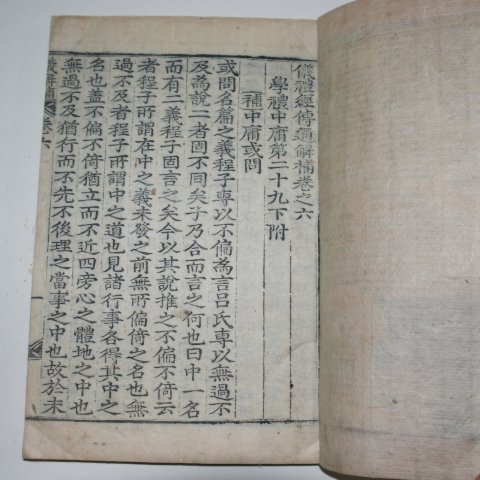 儀禮經傳通解補卷之六
學禮中庸第二十九下附
補中庸或問
或問名篇之義程子專以不偏爲言呂氏專以無過不
及為說二者固不同矣子乃合而言之何也曰中一名
而有二義程子固言之矣今以其說推之不偏不倚云
者程子所謂在中之義未發之前無所偏倚之名也無
過不及者程子所謂中之道也見諸行事各得其中之
名也蓋不偏不倚猶立而不近四旁心之體地之中也
無過不及猶行而不先不後理之當事之中也故於未
卷六